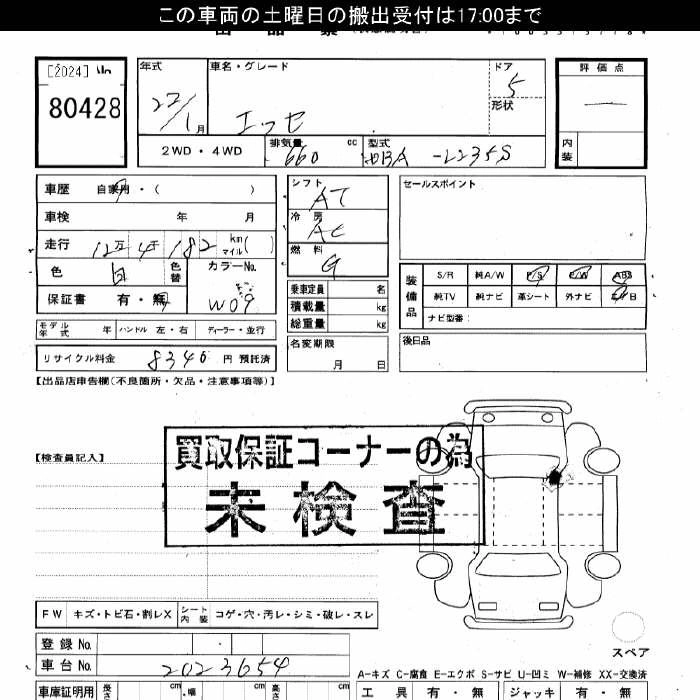 この車両の土曜日の搬出受付は17:00まで
[2024]
80428
年式 22/1月
車名・グレード エッセ
ドア 5
形状
評価点 —
内装
2WD・4WD
排気量 660 cc
型式 -L235S
車歴 自家用・( )
車検 年 月
走行 12万4千182 km マイル( )
色 白 色替
カラーNo. W09
保証書 有・無
シフト AT
冷房 AC
燃料 G
乗車定員 名
積載量 kg
総重量 kg
セールスポイント
装備品
S/R 純A/W P/S P/W ABS
純TV 純ナビ 革シート 外ナビ エアB
ナビ型番:
モデル年式 年 ハンドル 左・右 ディーラー・並行
名変期限 月 日
後日品
リサイクル料金 8340 円 預託済
【出品店申告欄(不良箇所・欠品・注意事項等)】
【検査員記入】
買取保証コーナーの為
未検査
FW キズ・トビ石・割レX シート内装 コゲ・穴・汚レ・シミ・破レ・スレ
スペア
登録No.
車台No. 2023654
A-キズ C-腐食 E-エクボ S-サビ U-凹ミ W-補修 XX-交換済
車庫証明用 長さ cm 幅 cm 高さ cm
工具 有・無 ジャッキ 有・無